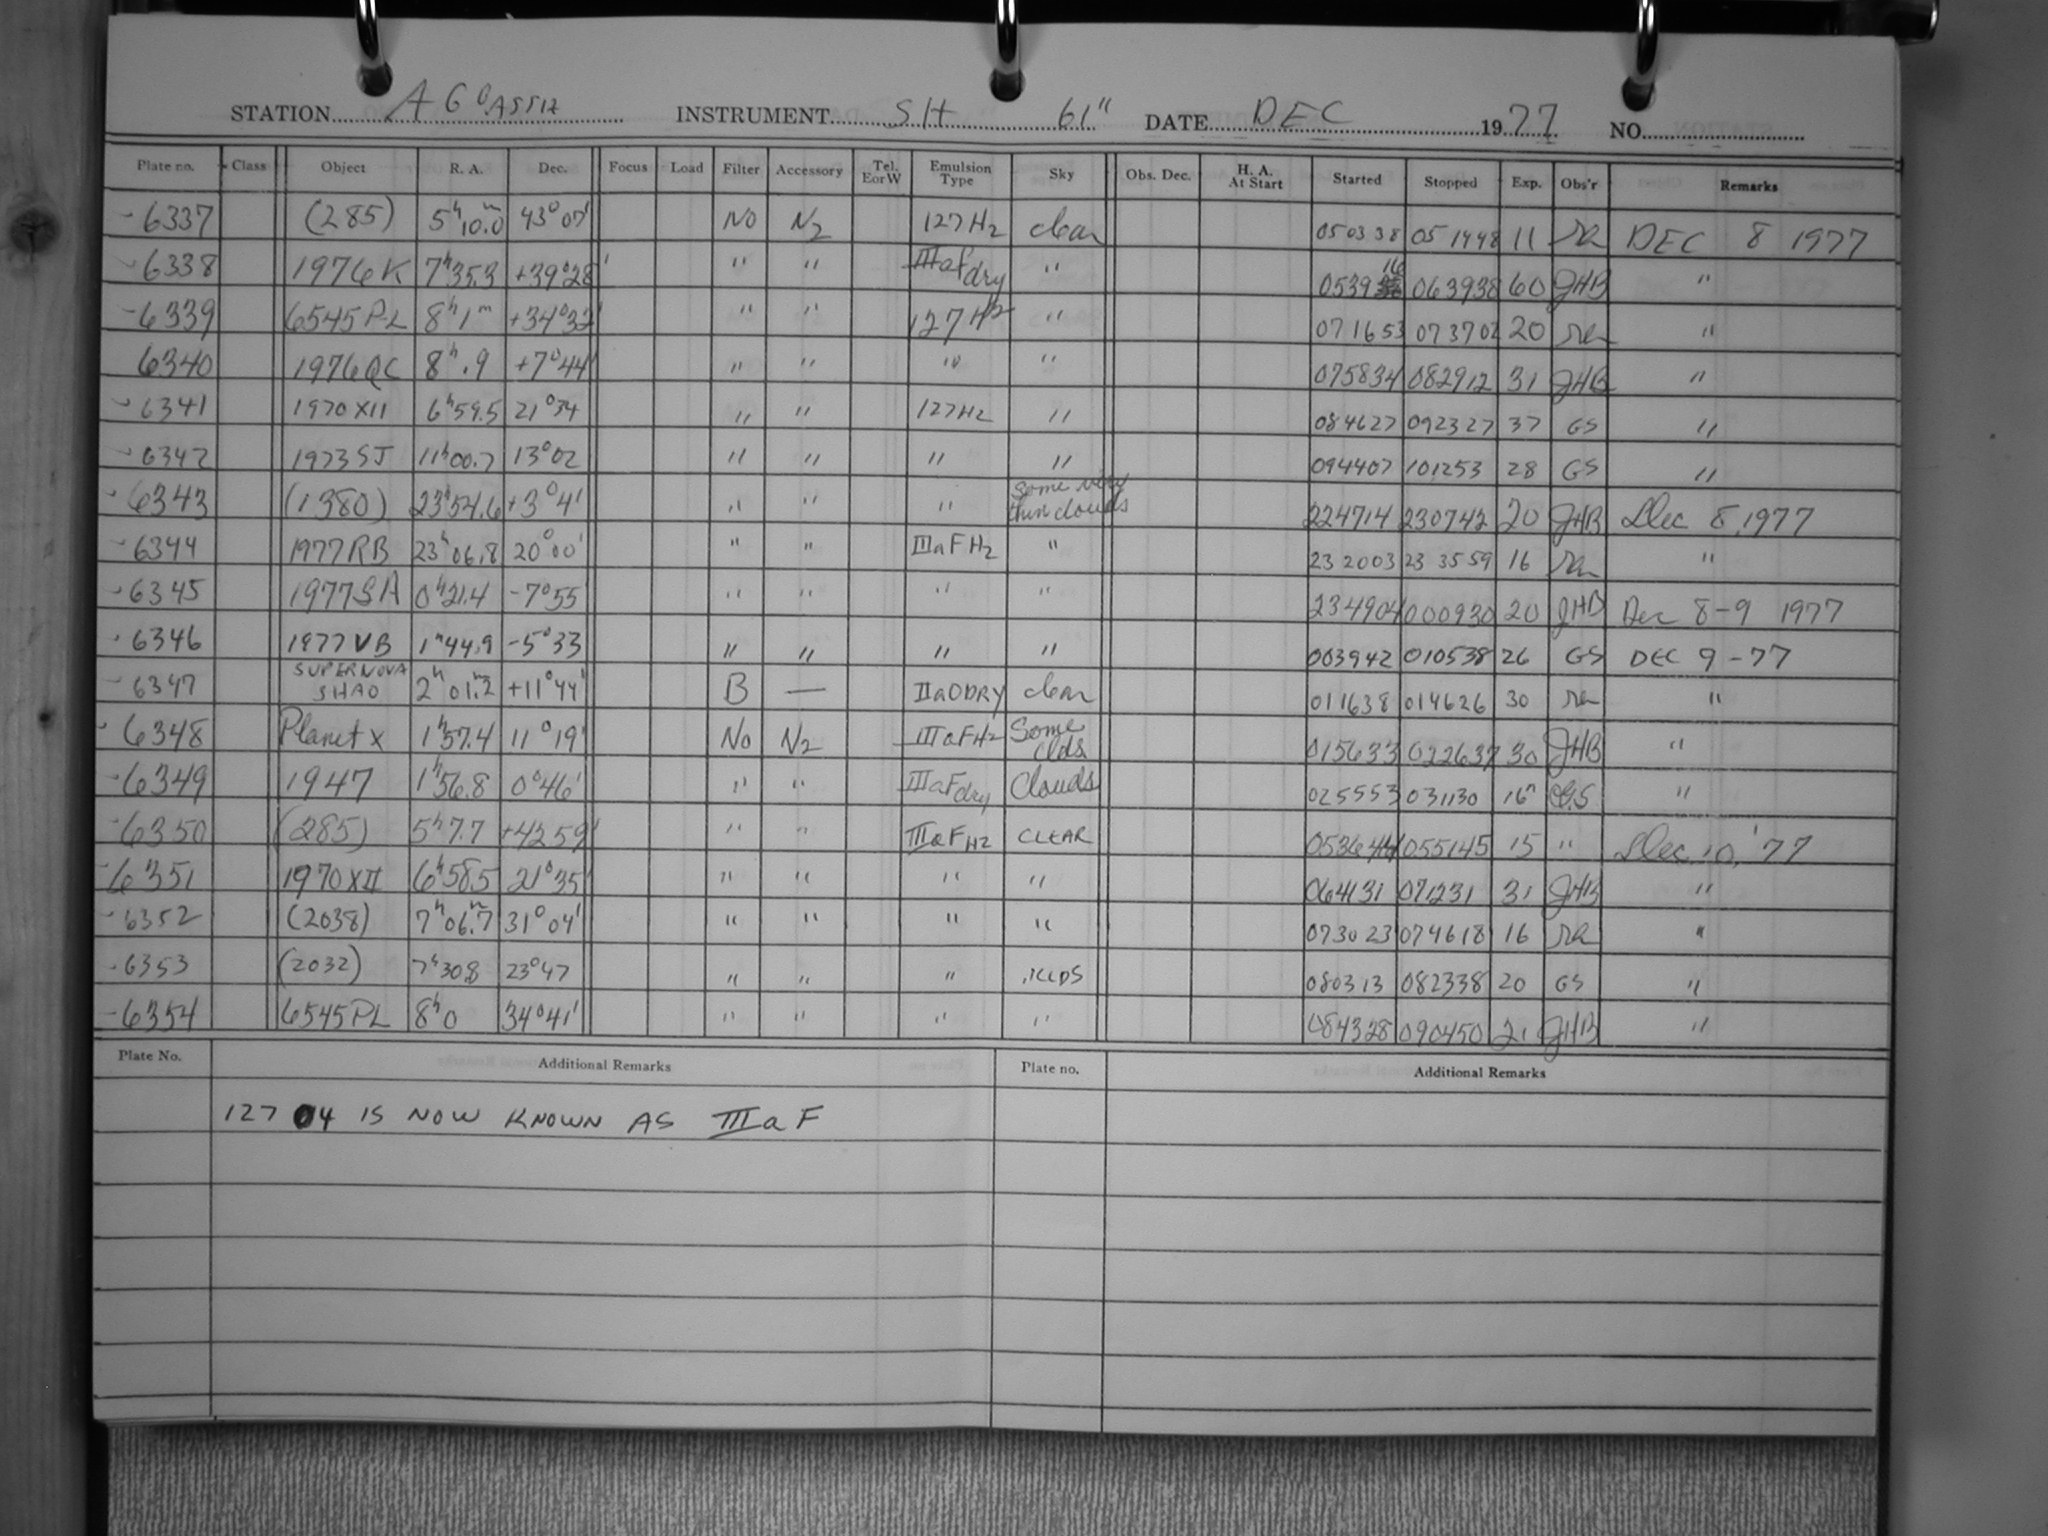 STATION AGASSIZ INSTRUMENT SH 61" DATE DEC 1977 NO.
Plate no. Class Object R. A. Dec. Focus Load Filter Accessory Tel. E or W Emulsion Type Sky Obs. Dec. H. A. At Start Started Stopped Exp. Obs'r Remarks
-6337 (285) 5h10.m0 43°07' No N2 127H2 clear 050338 051448 11 ra DEC 8 1977
-6338 1976K 7h35.3 +39°28' " " IIIaF dry " 053916 063938 60 JHB "
-6339 6545P-L 8h1m +34°32' " " 127H2 " 071653 073702 20 ra "
6340 1976QC 8h.9 +7°44' " " " " 075834 082912 31 JHB "
-6341 1970XII 6h59.5 21°34 " " 127H2 " 084627 092327 37 GS "
-6342 1973SJ 11h00.7 13°02 " " " " 094407 101253 28 GS "
-6343 (1380) 23h54.6 +3°41 " " " some very thin clouds 224714 230742 20 JHB Dec 8, 1977
-6344 1977RB 23h06.8 20°00' " " IIIaFH2 " 232003 233559 16 ra "
-6345 1977SA 0h21.4 -7°55' " " " " 234904 000930 20 JHB Dec 8-9 1977
-6346 1977VB 1h44.9 -5°33 " " " " 003942 010538 26 GS DEC 9-77
-6347 SUPERNOVA SHAO 2h01.m2 +11°44' B — IIaO DRY clear 011638 014626 30 ra "
-6348 Planet X 1h57.4 11°19' No N2 IIIaFH2 Some clds 015633 022637 30 JHB "
-6349 1947 1h56.8 0°46' " " IIIaF dry Clouds 025553 031130 16 GS "
-6350 (285) 5h7.7 +4259' " " IIIaFH2 CLEAR 053644 055145 15 " Dec. 10, '77
-6351 1970XII 6h58.5 21°35' " " " " 064131 071231 31 JHB "
-6352 (2038) 7h06.m7 31°04' " " " " 073023 074618 16 ra "
-6353 (2032) 7h30.8 23°47 " " " CLDS 080313 082338 20 GS "
-6354 6545PL 8h0 34°41' " " " " 084328 090450 21 JHB "
Plate No. Additional Remarks Plate no. Additional Remarks
127 04 IS NOW KNOWN AS IIIaF